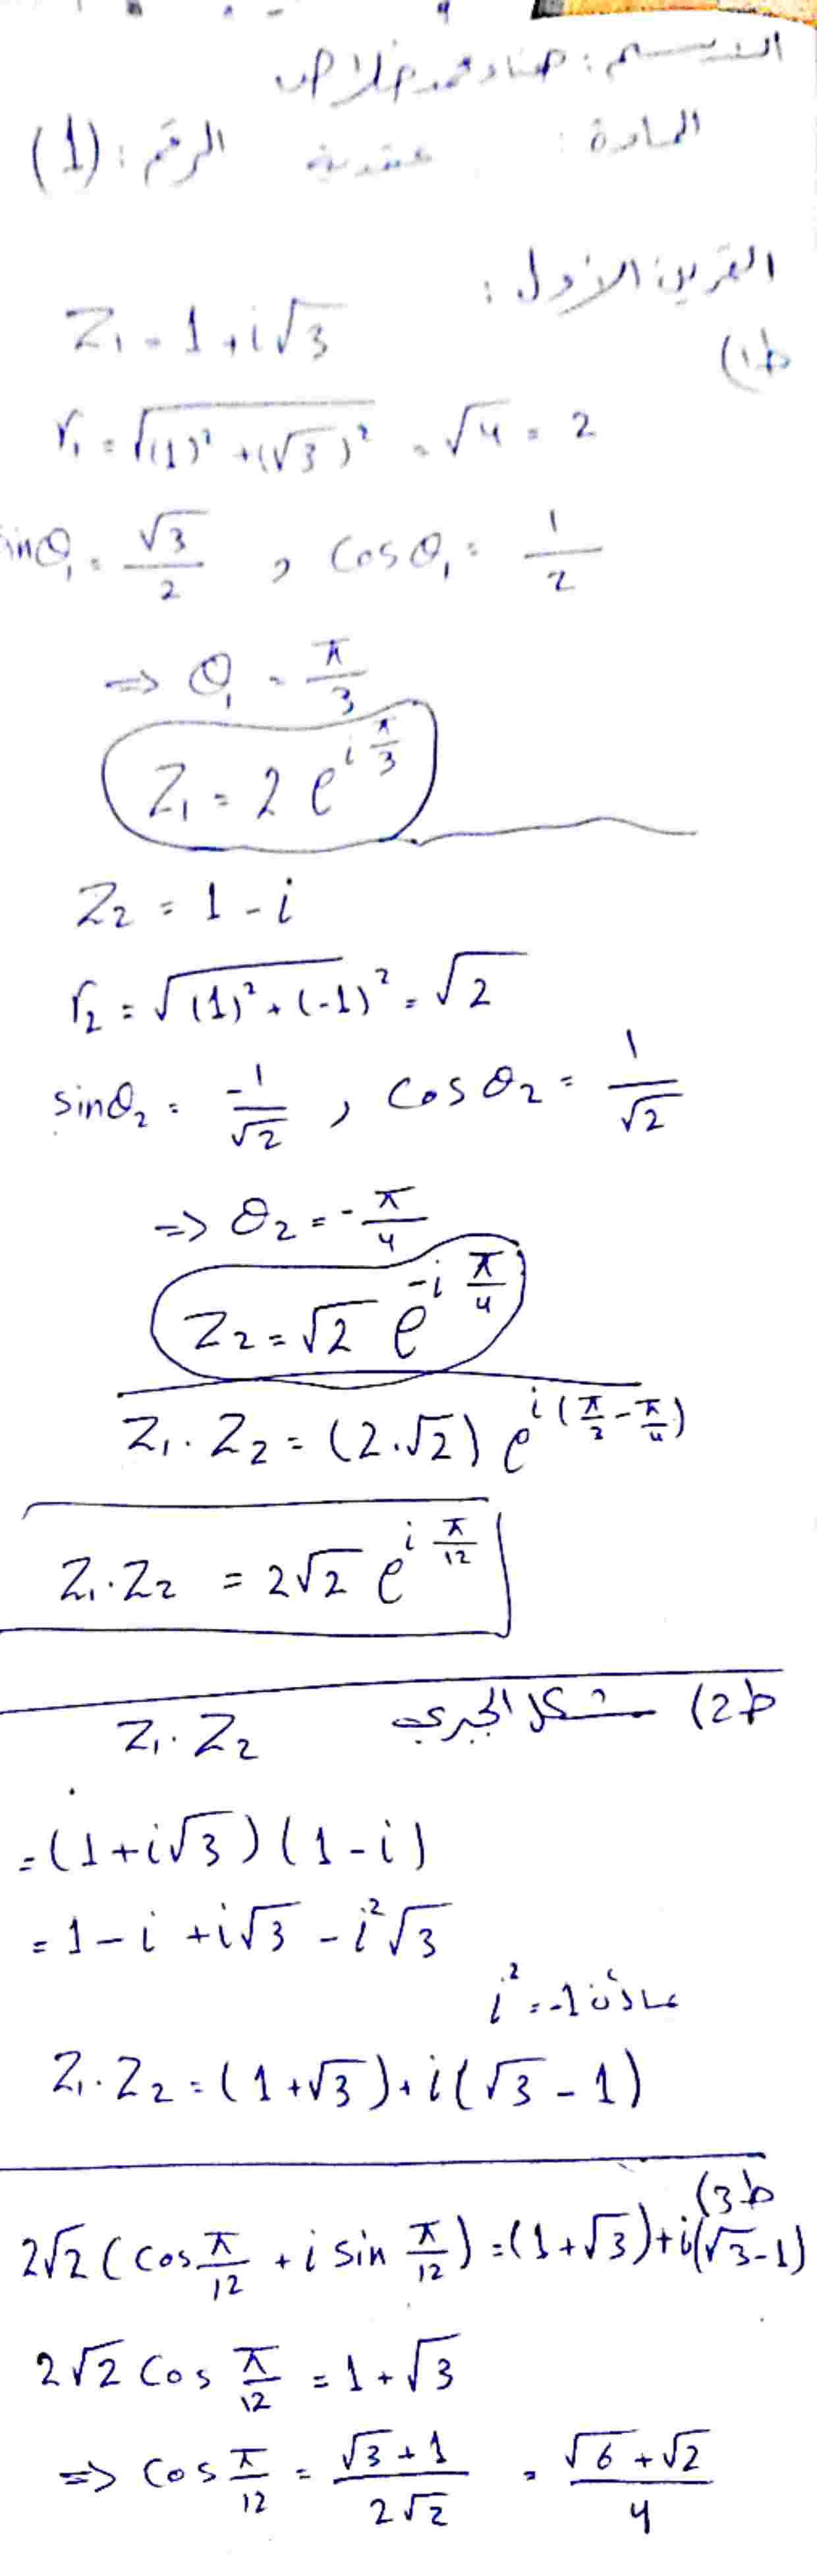 الاسم: هناد محمد خلاص
المادة: عقدية الرقم: (1)
التمرين الأول:
ط1)
Z₁ = 1 + i√3
r₁ = √((1)² + (√3)²) = √4 = 2
sinθ₁ = √3/2 , cosθ₁ = 1/2
=> θ₁ = π/3
Z₁ = 2 e^(i π/3)
Z₂ = 1 - i
r₂ = √((1)² + (-1)²) = √2
sinθ₂ = -1/√2 , cosθ₂ = 1/√2
=> θ₂ = -π/4
Z₂ = √2 e^(-i π/4)
Z₁ . Z₂ = (2.√2) e^(i(π/3 - π/4))
Z₁ . Z₂ = 2√2 e^(i π/12)
ط2) شكل الجبري
Z₁ . Z₂
= (1 + i√3)(1 - i)
= 1 - i + i√3 - i²√3
i² = -1
Z₁ . Z₂ = (1 + √3) + i(√3 - 1)
ط3)
2√2 (cos π/12 + i sin π/12) = (1 + √3) + i(√3 - 1)
2√2 cos π/12 = 1 + √3
=> cos π/12 = (√3 + 1)/(2√2) = (√6 + √2)/4